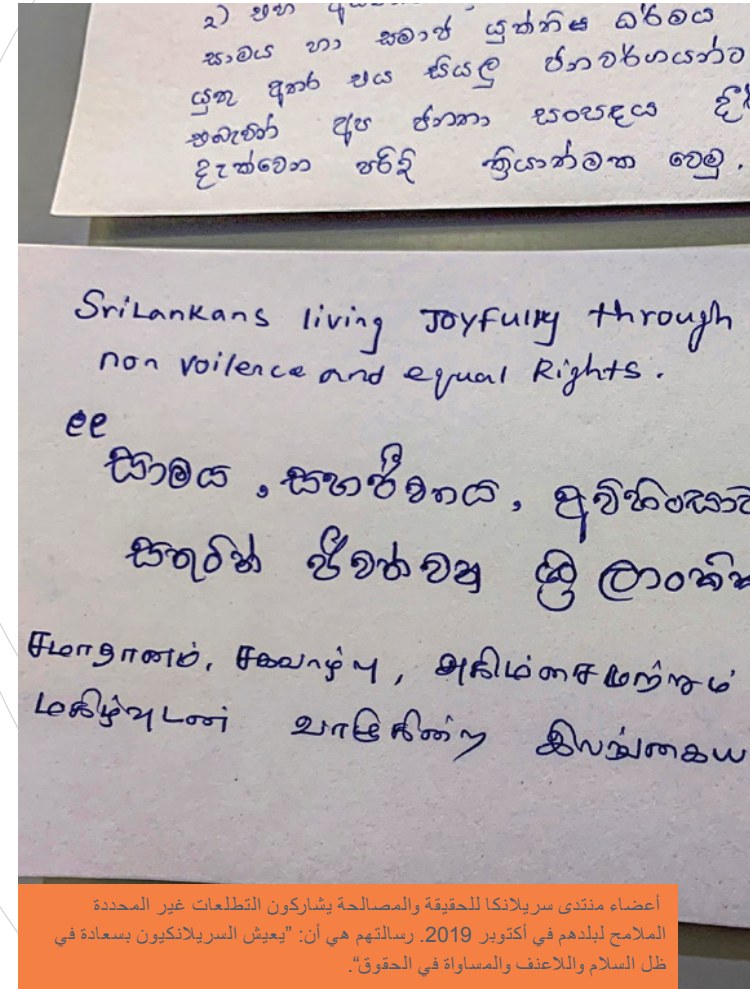 2) ඡන
සාමය හා සමාජ යුක්තිය ධර්මය
යුතු අතර එය සියලු ජනවර්ගයන්ට
එබැවින් අප ජනතා සංසඳය
දැක්වෙන පරිදි ක්‍රියාත්මක වෙමු.
SriLankans living Joyfully through
non voilence and equal Rights.
සාමය, සහජීවනය,
සතුටින් ජීවත්වන ශ්‍රී ලාංකික
சமாதானம், சகவாழ்வு, அகிம்சை மற்றும்
மகிழ்வுடன் வாழ்கின்ற இலங்கைய
أعضاء منتدى سريلانكا للحقيقة والمصالحة يشاركون التطلعات غير المحددة
الملامح لبلدهم في أكتوبر 2019. رسالتهم هي أن: ”يعيش السريلانكيون بسعادة في
ظل السلام واللاعنف والمساواة في الحقوق“.